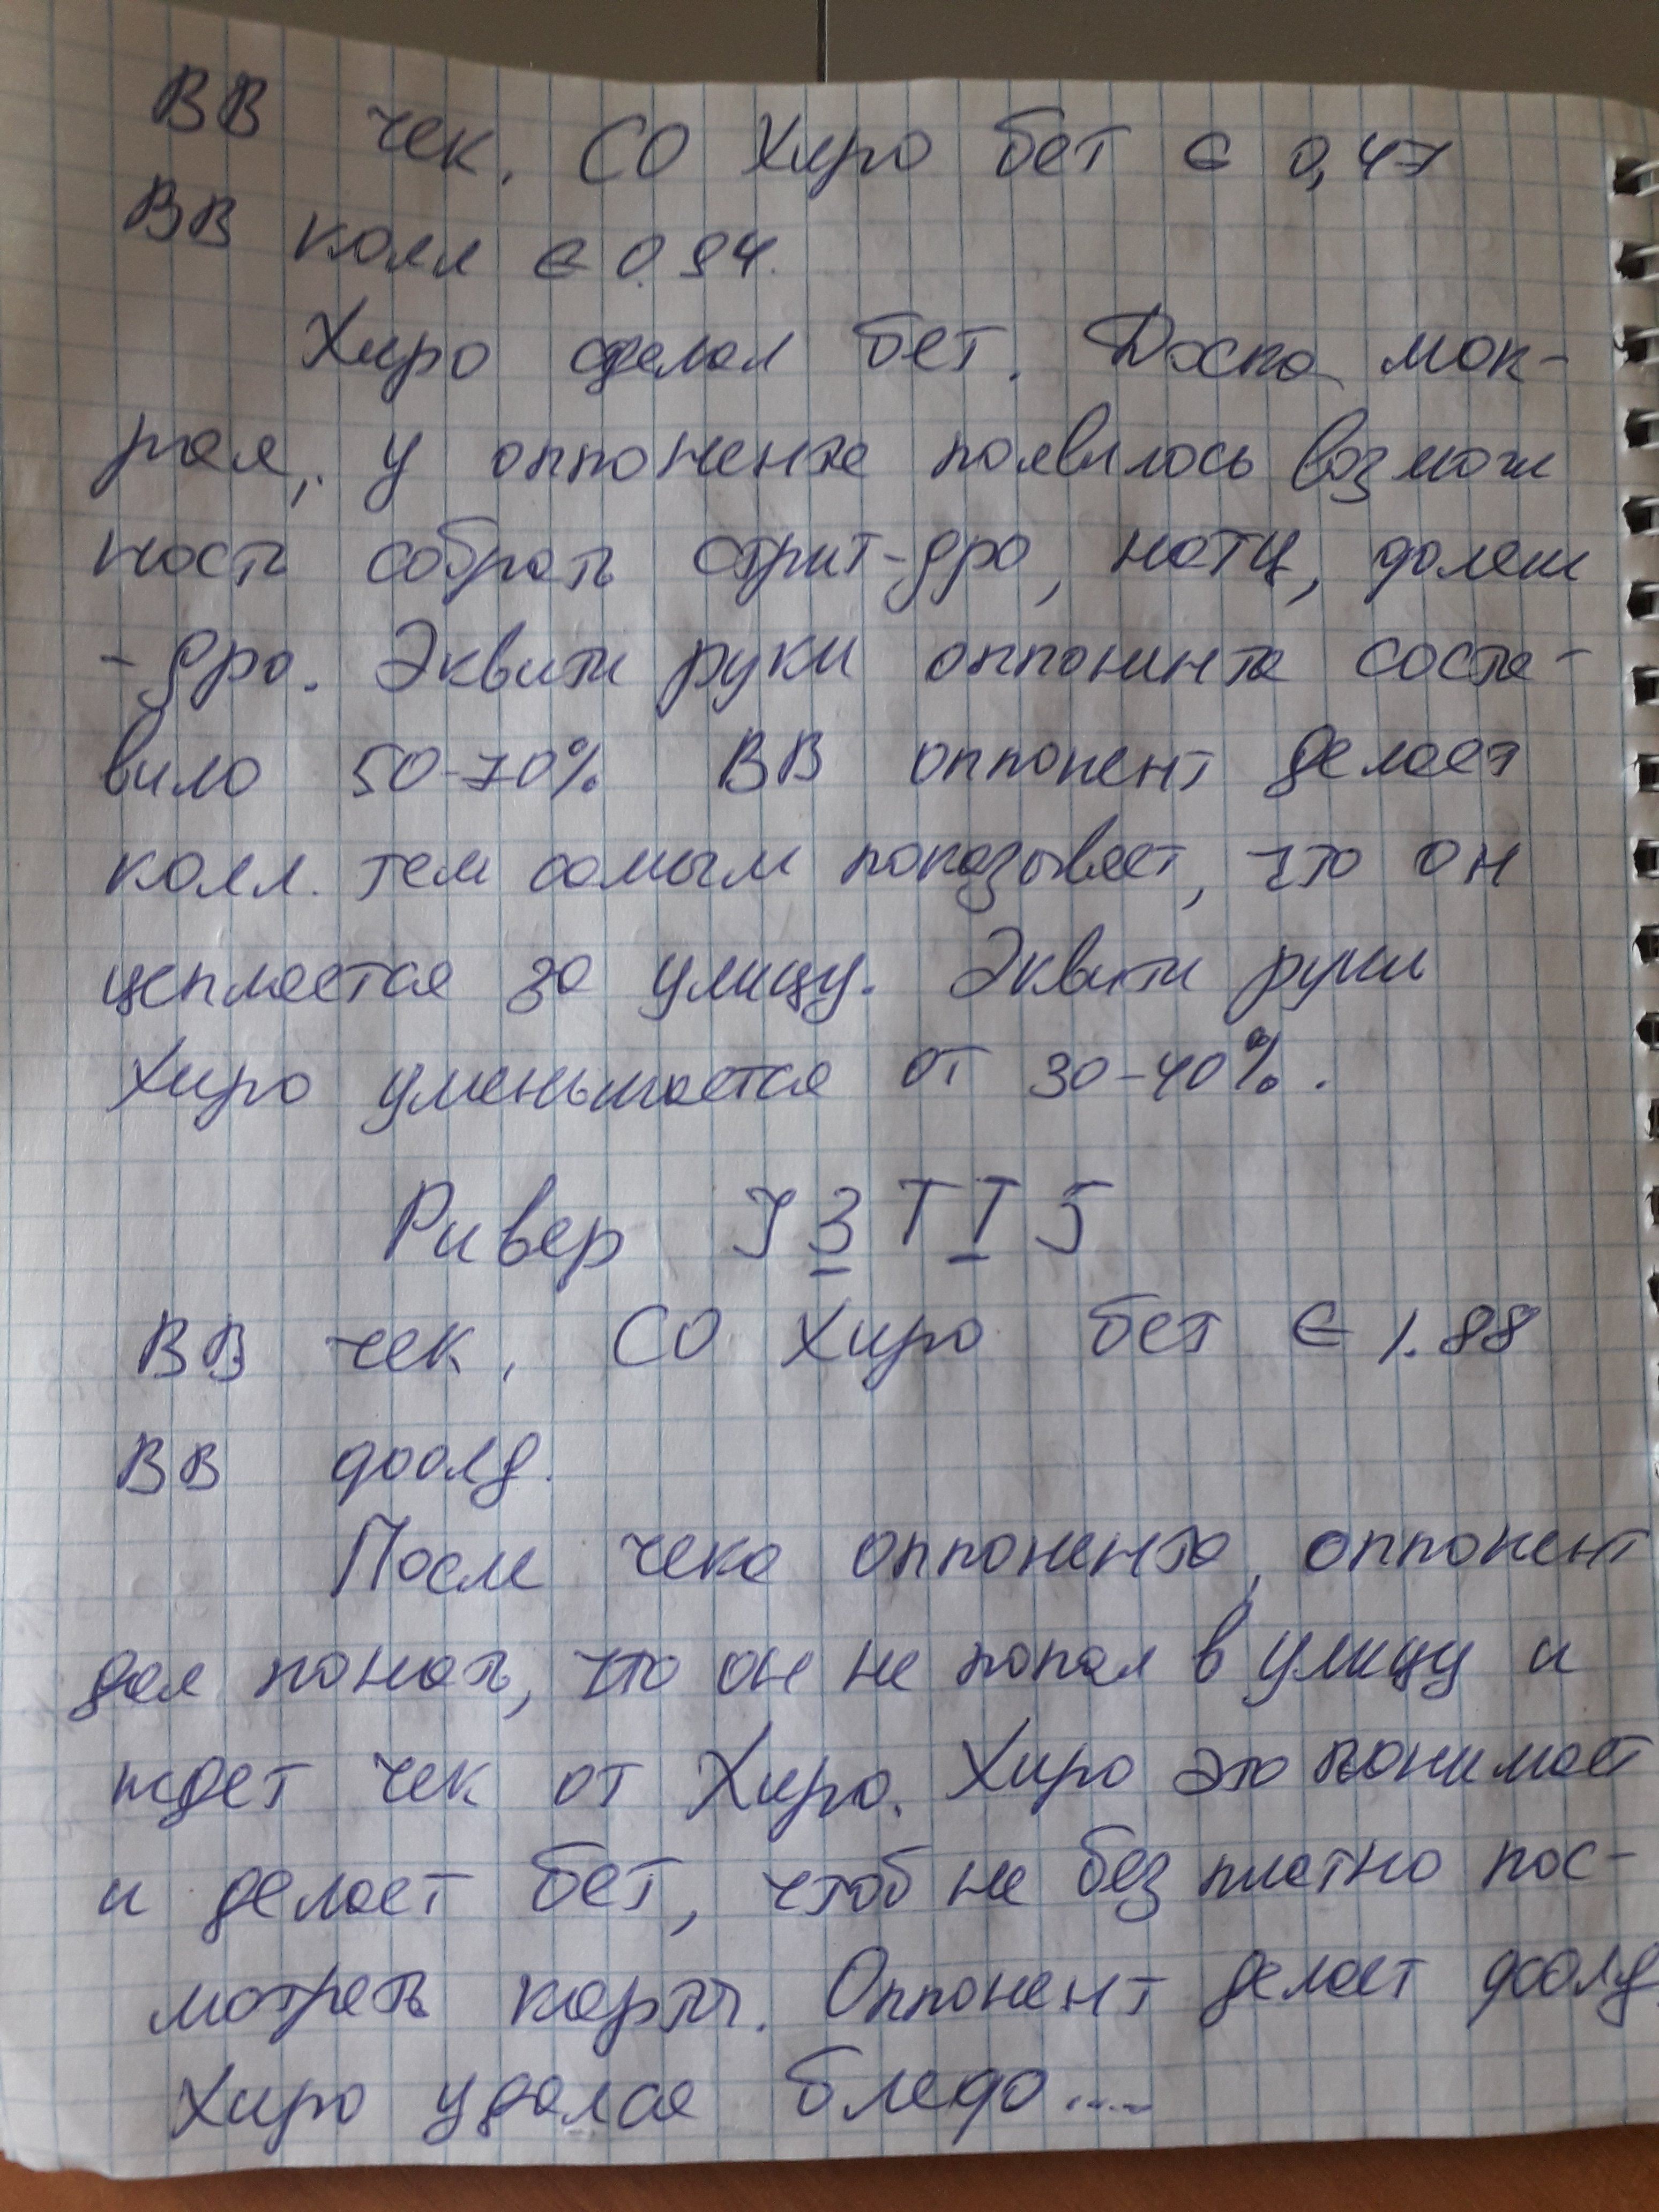 ВВ чек. СО Хиро бет € 0,47
ВВ колл € 0.94.
Хиро сделал бет. Доска мок-
рая, у оппонента появилось возмож
ность собрать стрит-дро, натц, флеш
-дро. Эквити руки оппонинта соста-
вило 50-70% ВВ оппонент делает
колл. тем самым показывает, что он
цепляется за улицу. Эквити руки
Хиро уменьшается от 30-40%.
Ривер J 3 T T 5
ВВ чек, СО Хиро бет € 1.88
ВВ фолд.
После чека оппонента, оппонент
дал понять, что он не попал в улицу и
ждет чек от Хиро. Хиро это понимает
и делает бет, чтоб не без платно пос-
мотреть карты. Оппонент делает фолд.
Хиро удался